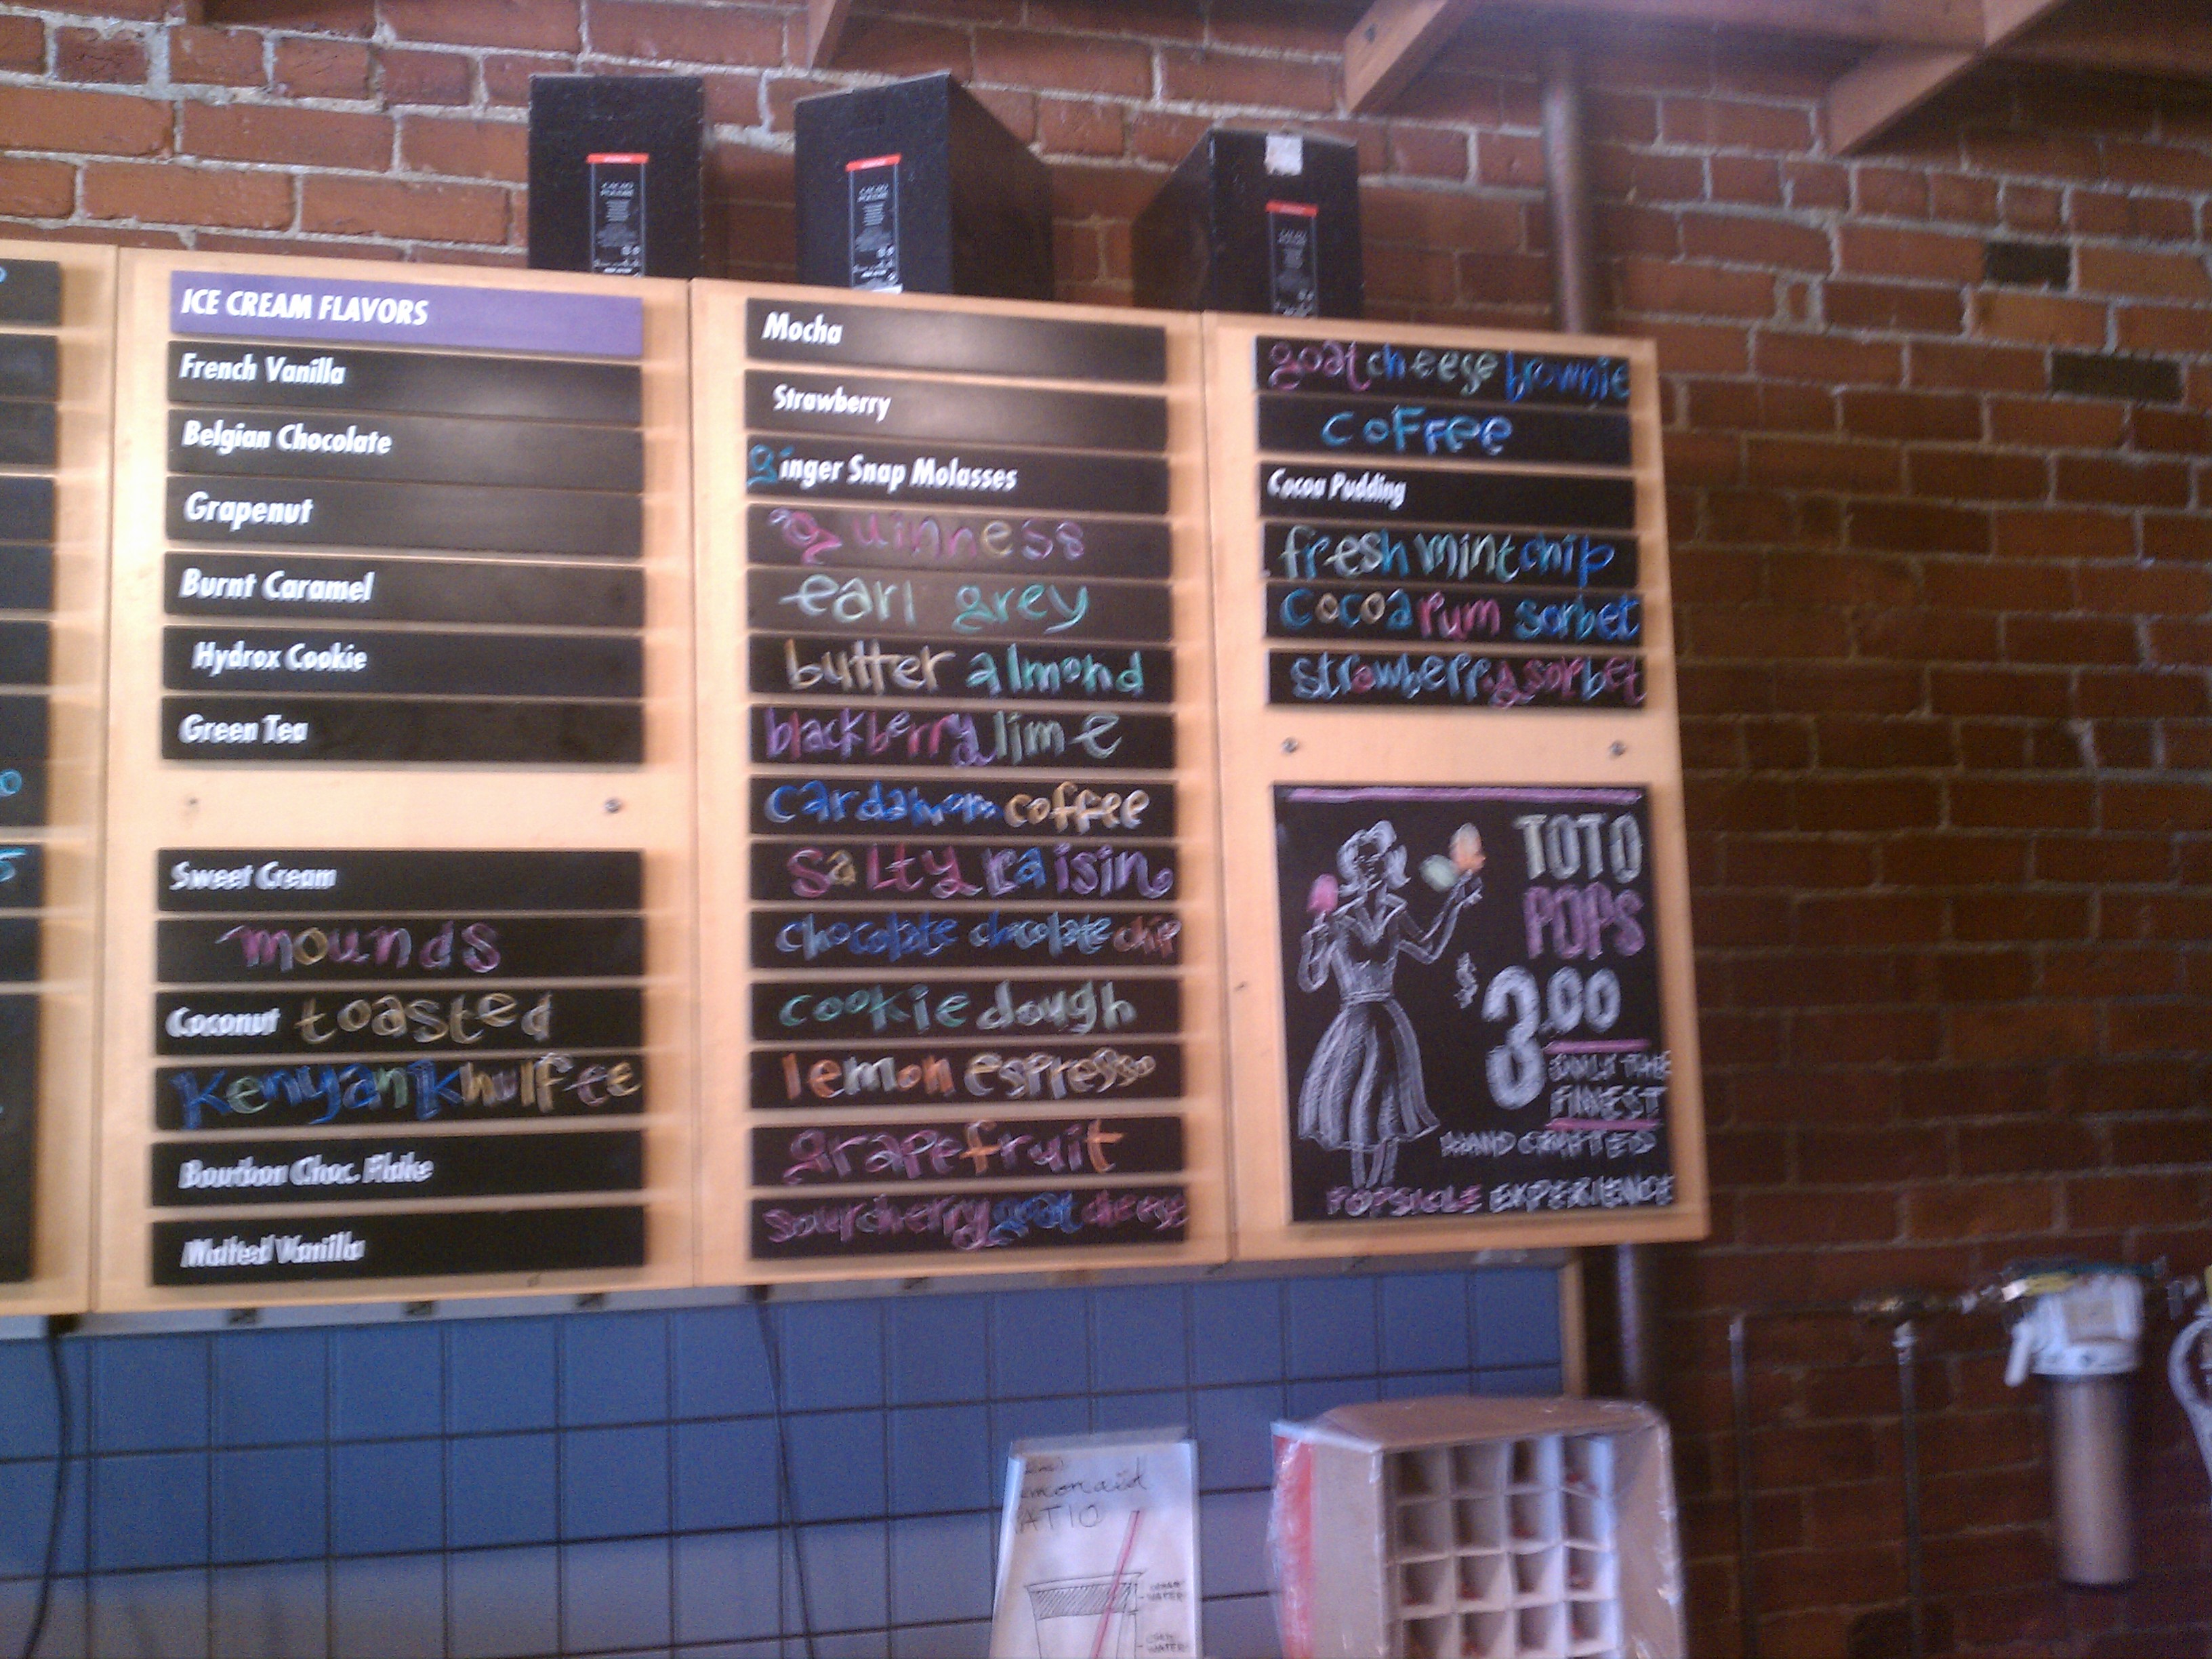 ICE CREAM FLAVORS
French Vanilla
Belgian Chocolate
Grapenut
Burnt Caramel
Hydrox Cookie
Green Tea
Sweet Cream
mounds
Coconut toasted
Kenyan Khulfee
Bourbon Choc. Flake
Malted Vanilla
Mocha
Strawberry
ginger Snap Molasses
guinness
earl grey
butter almond
blackberry lime
cardamom coffee
salty raisin
chocolate chocolate chip
cookie dough
lemon espresso
grapefruit
sour cherry goat cheese
goat cheese brownie
coffee
Cocoa Pudding
fresh mint chip
cocoa rum sorbet
strawberry sorbet
TOTO
POPS
$3.00
ONLY THE
FINEST
HAND CRAFTED
POPSICLE EXPERIENCE
CACAO
POUDRE
CACAO
POUDRE
emonaid
ATIO